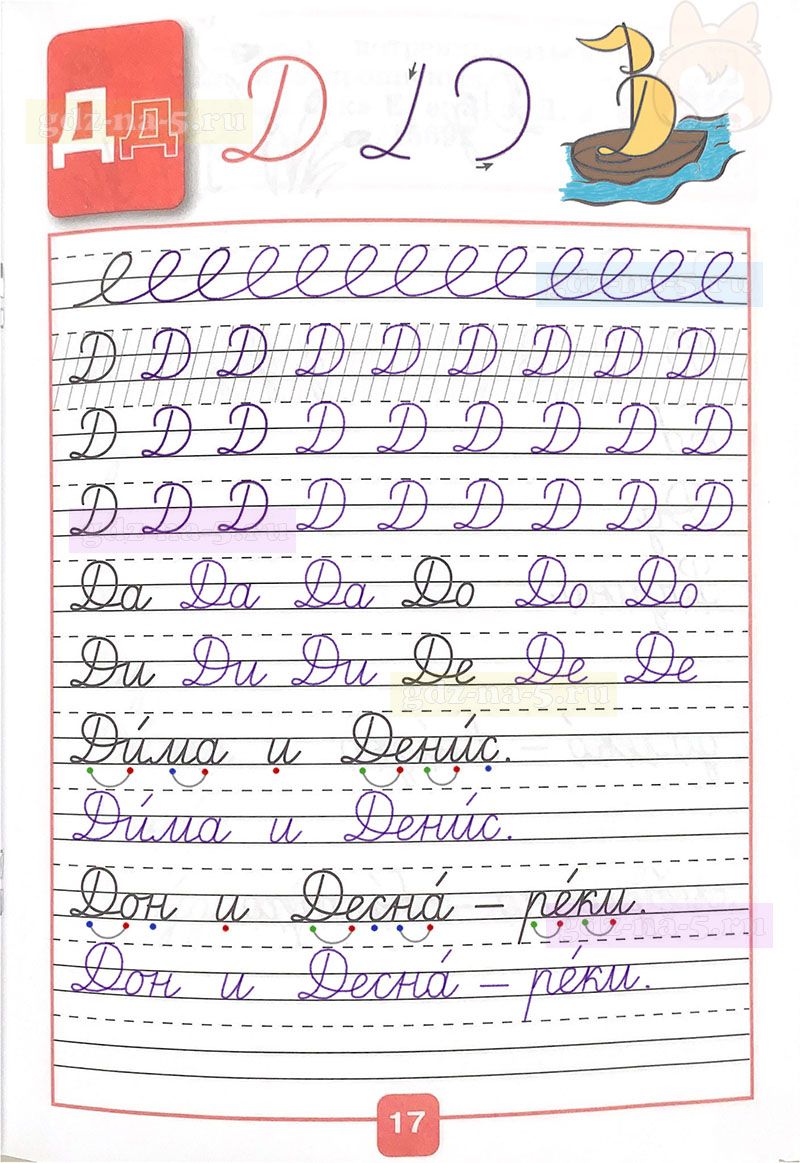 Д Д Д
gdz-na-5.ru
gdz-na-5.ru
Д Д Д Д Д Д Д Д Д
Д Д Д Д Д Д Д Д Д
Д Д Д Д Д Д Д Д Д
gdz-na-5.ru
Да Да Да До До До
Ди Ди Ди Де Де Де
gdz-na-5.ru
Ди́ма и Дени́с.
Ди́ма и Дени́с.
Дон и Десна́ – ре́ки.
gdz-na-5.ru
Дон и Десна́ – ре́ки.
17